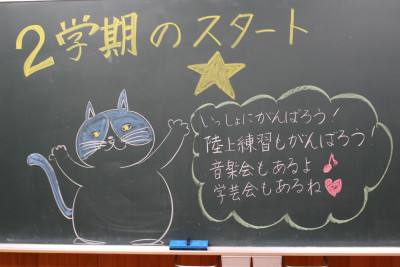 2学期のスタート
いっしょにがんばろう!
陸上練習もがんばろう!
音楽会もあるよ♪
学芸会もあるね